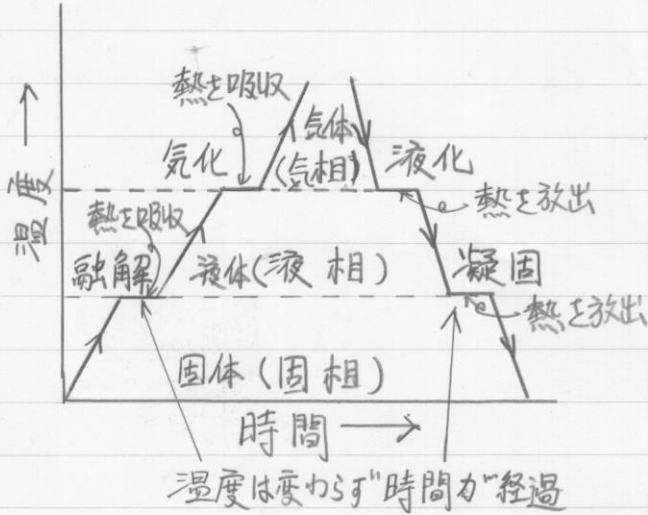 熱を吸収
気体
(気相)
気化
液化
熱を放出
温度→
熱を吸収
融解
液体(液相)
凝固
熱を放出
固体(固相)
時間→
温度は変わらず時間が経過